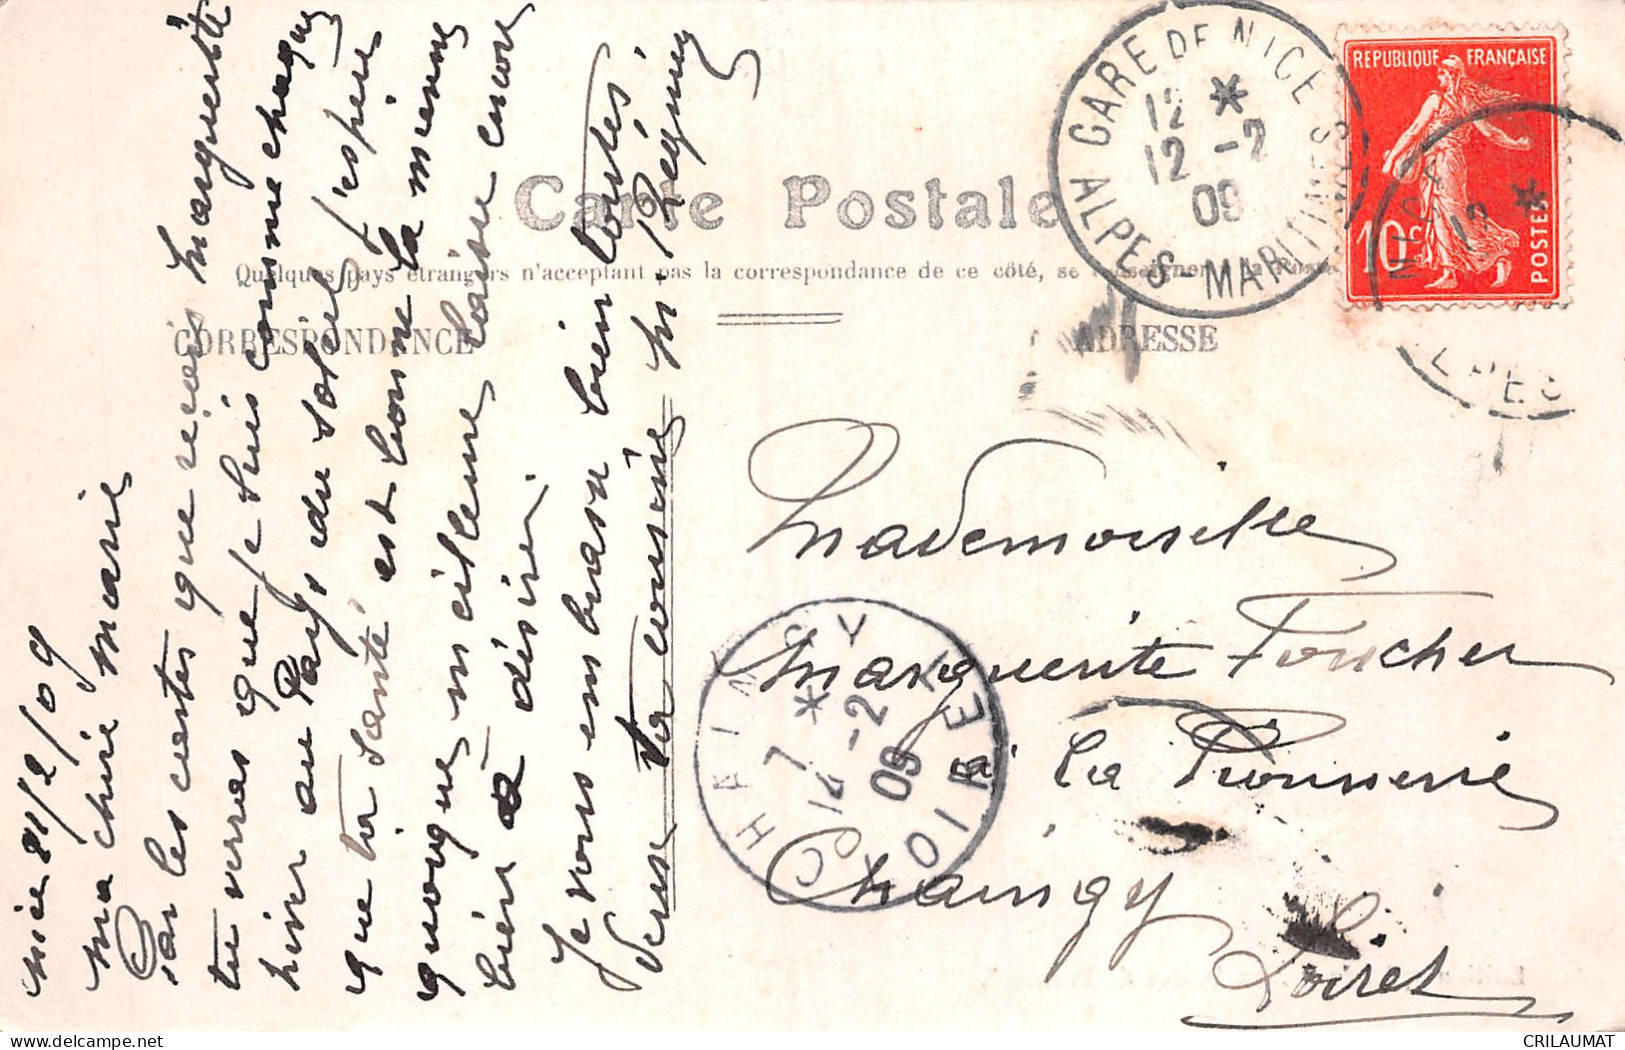 Carte Postale
Quelques pays étrangers n'acceptant pas la correspondance de ce côté, se
CORRESPONDANCE
ADRESSE
REPUBLIQUE FRANÇAISE
10c
POSTES
GARE DE NICE
12 *
12 -2
09
ALPES-MARITIMES
NICE
12 *
ALPES
CHAINGY
7 *
14 -2
09
LOIRET
Nice /2/09
Ma chère Marie
Par les cartes que reçois Marguerite
tu verras que je suis comme chaque
hiver au Pays du soleil, j'espère
que ta santé est bonne la mienne
quoique meilleure laisse encore
bien à désirer
Je vous embrasse bien toutes
ta cousine M. Régnier
Mademoiselle
Marguerite Foucher
à la
Chaingy
Loiret
CRILAUMAT